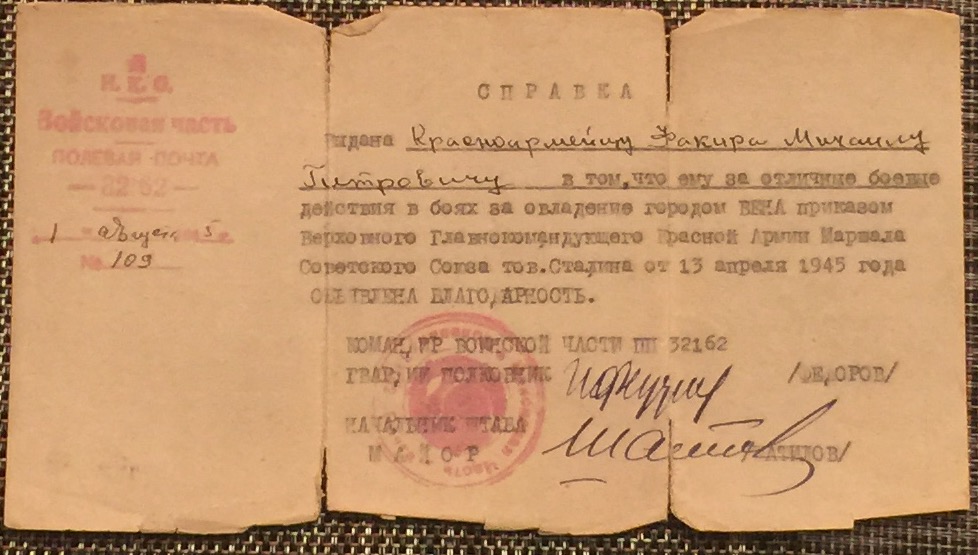 Н. К. О.
Войсковая часть
ПОЛЕВАЯ ПОЧТА
1 августа 5
№ 109
СПРАВКА
Выдана Красноармейцу Факира Михаилу
Петровичу в том, что ему за отличные боевые
действия в боях за овладение городом ВЕНА приказом
Верховного Главнокомандующего Красной Армии Маршала
Советского Союза тов. Сталина от 13 апреля 1945 года
ОБЪЯВЛЕНА БЛАГОДАРНОСТЬ.
КОМАНДИР ВОИНСКОЙ ЧАСТИ ПП 32162
ГВАРДИИ ПОЛКОВНИК /ФЕДОРОВ/
НАЧАЛЬНИК ШТАБА
МАЙОР